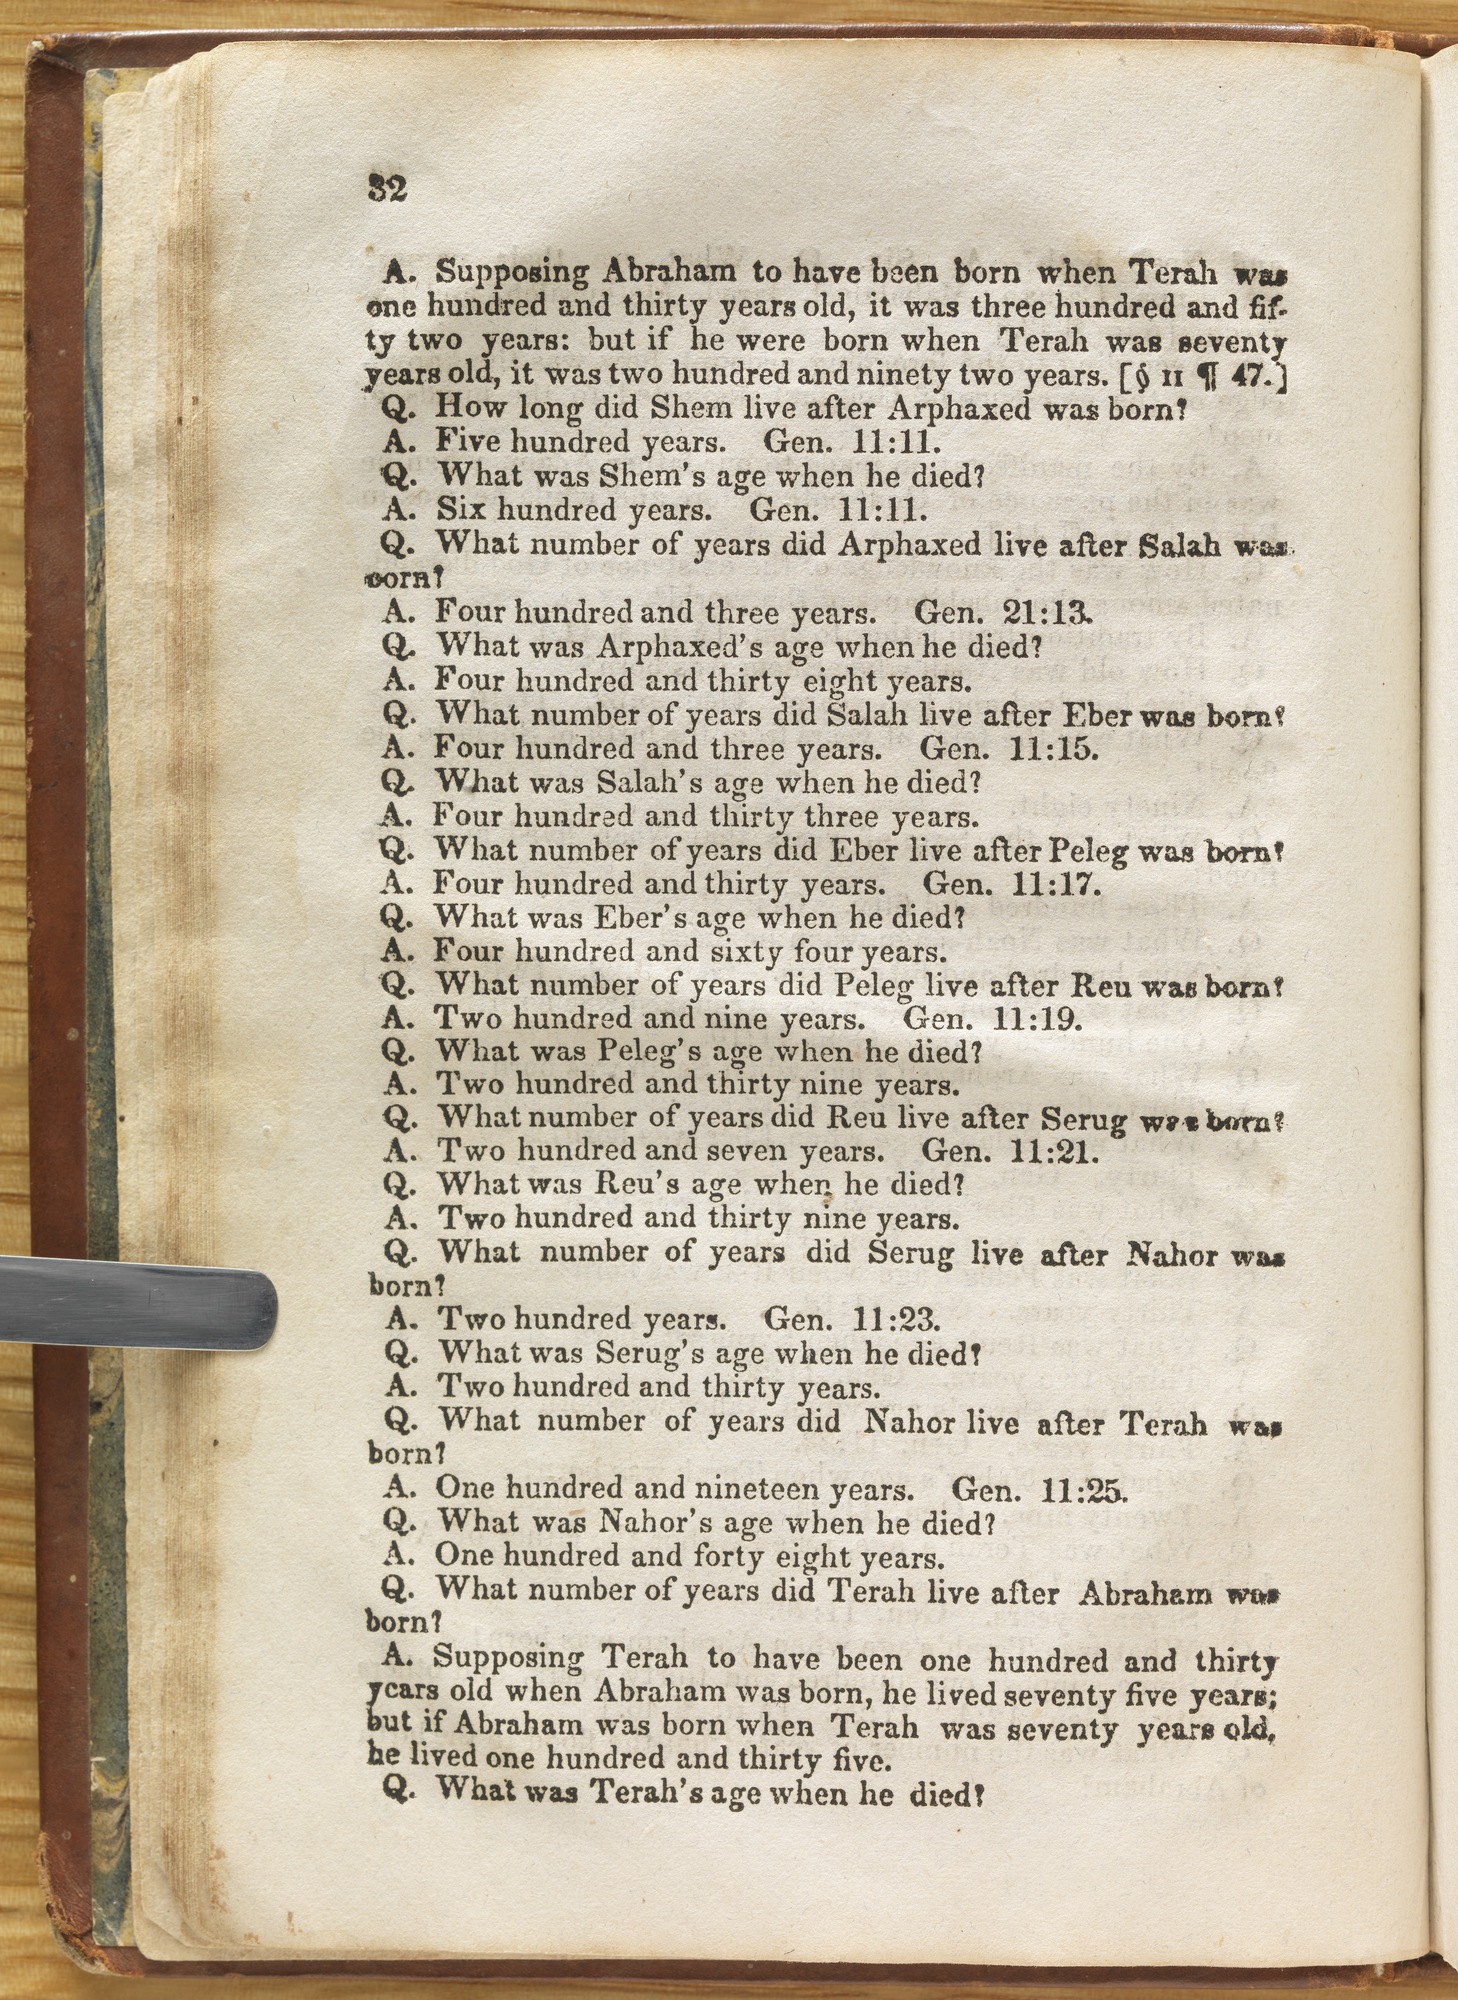 32
A. Supposing Abraham to have been born when Terah was
one hundred and thirty years old, it was three hundred and fif-
ty two years: but if he were born when Terah was seventy
years old, it was two hundred and ninety two years. [§ II ¶ 47.]
Q. How long did Shem live after Arphaxed was born?
A. Five hundred years. Gen. 11:11.
Q. What was Shem's age when he died?
A. Six hundred years. Gen. 11:11.
Q. What number of years did Arphaxed live after Salah was
born?
A. Four hundred and three years. Gen. 21:13.
Q. What was Arphaxed's age when he died?
A. Four hundred and thirty eight years.
Q. What number of years did Salah live after Eber was born?
A. Four hundred and three years. Gen. 11:15.
Q. What was Salah's age when he died?
A. Four hundred and thirty three years.
Q. What number of years did Eber live after Peleg was born?
A. Four hundred and thirty years. Gen. 11:17.
Q. What was Eber's age when he died?
A. Four hundred and sixty four years.
Q. What number of years did Peleg live after Reu was born?
A. Two hundred and nine years. Gen. 11:19.
Q. What was Peleg's age when he died?
A. Two hundred and thirty nine years.
Q. What number of years did Reu live after Serug was born?
A. Two hundred and seven years. Gen. 11:21.
Q. What was Reu's age when he died?
A. Two hundred and thirty nine years.
Q. What number of years did Serug live after Nahor was
born?
A. Two hundred years. Gen. 11:23.
Q. What was Serug's age when he died?
A. Two hundred and thirty years.
Q. What number of years did Nahor live after Terah was
born?
A. One hundred and nineteen years. Gen. 11:25.
Q. What was Nahor's age when he died?
A. One hundred and forty eight years.
Q. What number of years did Terah live after Abraham was
born?
A. Supposing Terah to have been one hundred and thirty
years old when Abraham was born, he lived seventy five years;
but if Abraham was born when Terah was seventy years old,
he lived one hundred and thirty five.
Q. What was Terah's age when he died?